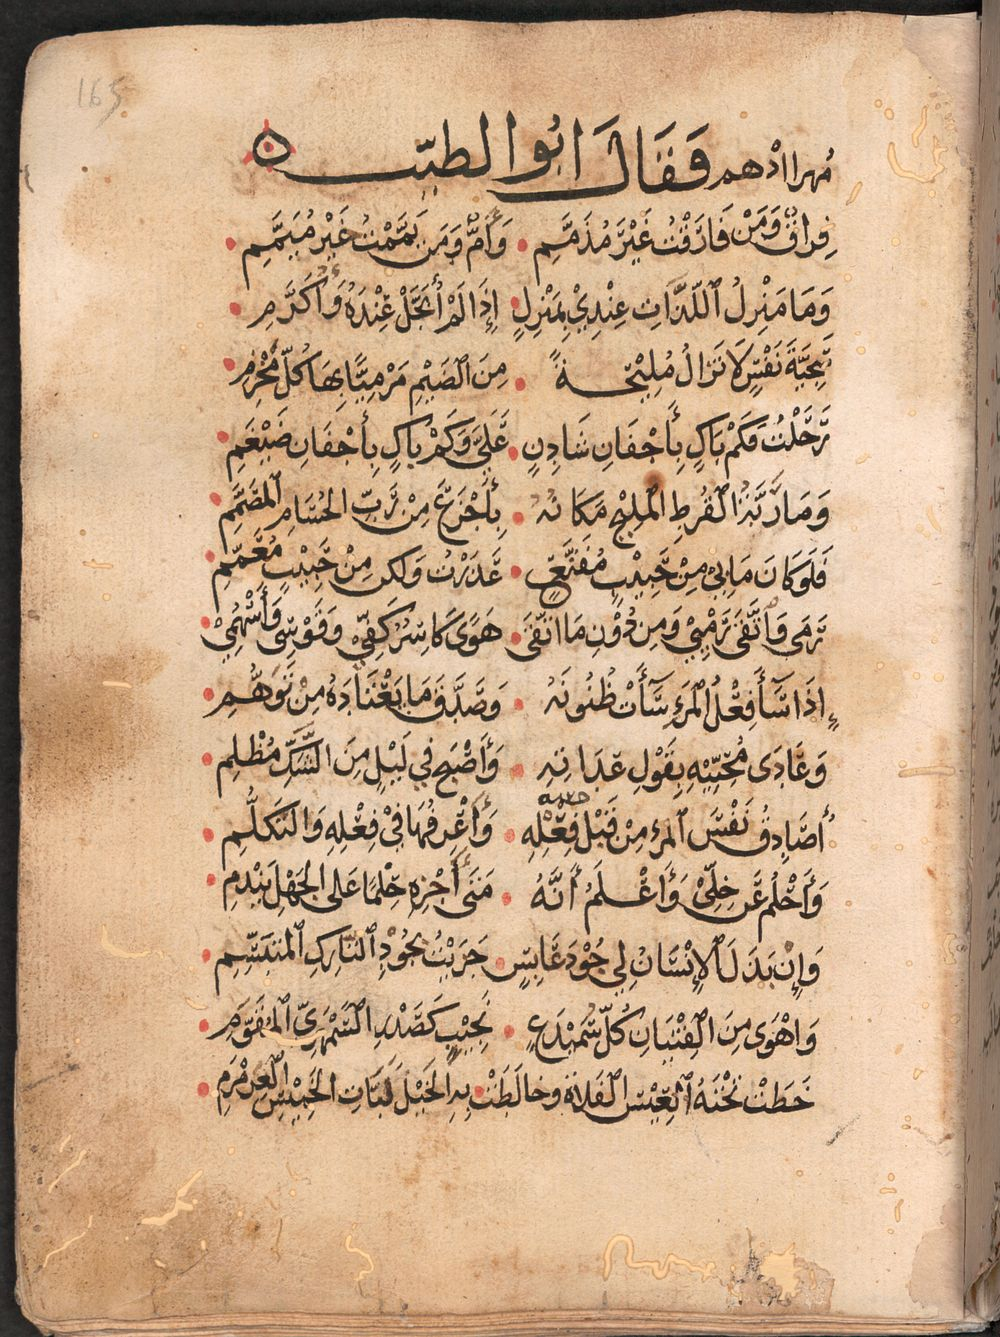 165
مهرا ادهم فقال ابو الطيب ن
فِراقٌ وَمَنْ فَارَقْتُ غَيْرُ مُذَمَّمِ • وَأَمٌّ وَمَن يَمَّمْتُ غَيْرُ مُيَمَّمِ •
وَمَا مَنْزِلُ ٱللَّذَّاتِ عِنْدِيْ بِمَنْزِلٍ • إِذَا لَمْ أُبَجَّلْ عِنْدَهُ وَأُكَرَّمِ •
سَجِيَّةُ نَفْسٍ لَا تَزَالُ مُلِيْحَةً • مِنَ ٱلضَّيْمِ مَرْمِيًّا بِهَا كُلُّ مَخْرِمِ •
رَحَلْتُ فَكَمْ بَاكٍ بِأَجْفَانِ شَادِنٍ • عَلَيَّ وَكَمْ بَاكٍ بِأَجْفَانِ ضَيْغَمِ •
وَمَا رَبَّةُ ٱلْقُرطِ ٱلْمَلِيْحِ مَكَانُهُ • بِأَجْزَعَ مِنْ رَبِّ الحُسَامِ ٱلمُصَمِّمِ •
فَلَوْ كَانَ مَا بِيْ مِنْ حَبِيْبٍ مُقَنَّعٍ • عَذَرْتُ وَلكن مِنْ حَبِيْبٍ مُعَمَّمِ •
رَمَى وَٱتَّقَى رَمْيِيْ وَمِن دُوْنِ مَا اتَّقَى • هَوًى كَاسِرٌ كَفِّيْ وَقَوْسِيْ وَأَسْهُمِيْ •
إِذَا سَآءَ فِعْلُ ٱلْمَرْءِ سَآءَتْ ظُنُونُهُ • وَصَدَّقَ مَا يَعْتَادُهُ مِنْ تَوَهُّمِ •
وَعَادَى مُحِبِّيْهِ بِقَوْلِ عِدَاتِهِ • وَأَصْبَحَ فِي لَيْلٍ مِنَ الشَّكِّ مُظْلِمِ •
أُصَادِقُ نَفْسَ ٱلمَرْءِ مِنْ قَبْلِ فِعْلِهِ • وَأَعْرِفُهَا فِيْ فِعْلِهِ وَالتَّكَلُّمِ •
وَأَحْلُمُ عَن خِلِّيْ وَأَعْلَمُ أَنَّهُ • مَتَى أَجْزِهِ حِلْمًا عَلى الجَهْلِ يَنْدَمِ •
وَإِنْ بَذَلَ ٱلإِنْسَانُ لِي جُوْدَ عَابِسٍ • جَزَيْتُ بِجُوْدِ ٱلتَّارِكِ ٱلْمُتَبَسِّمِ •
وَاهْوَى مِنَ ٱلْفِتْيَانِ كُلَّ سَمَيْدَعٍ • نَجِيْبٍ كَصَدْرِ ٱلسَّمْهَرِيِّ ٱلمُقَوَّمِ •
خَطَتْ تَحْتَهُ ٱلْعِيْسُ الْفَلَاةَ وخالَطَتْ • بِهِ الخَيْلُ كَبَّاتِ الخَمِيْسِ العَرَمْرَمِ •